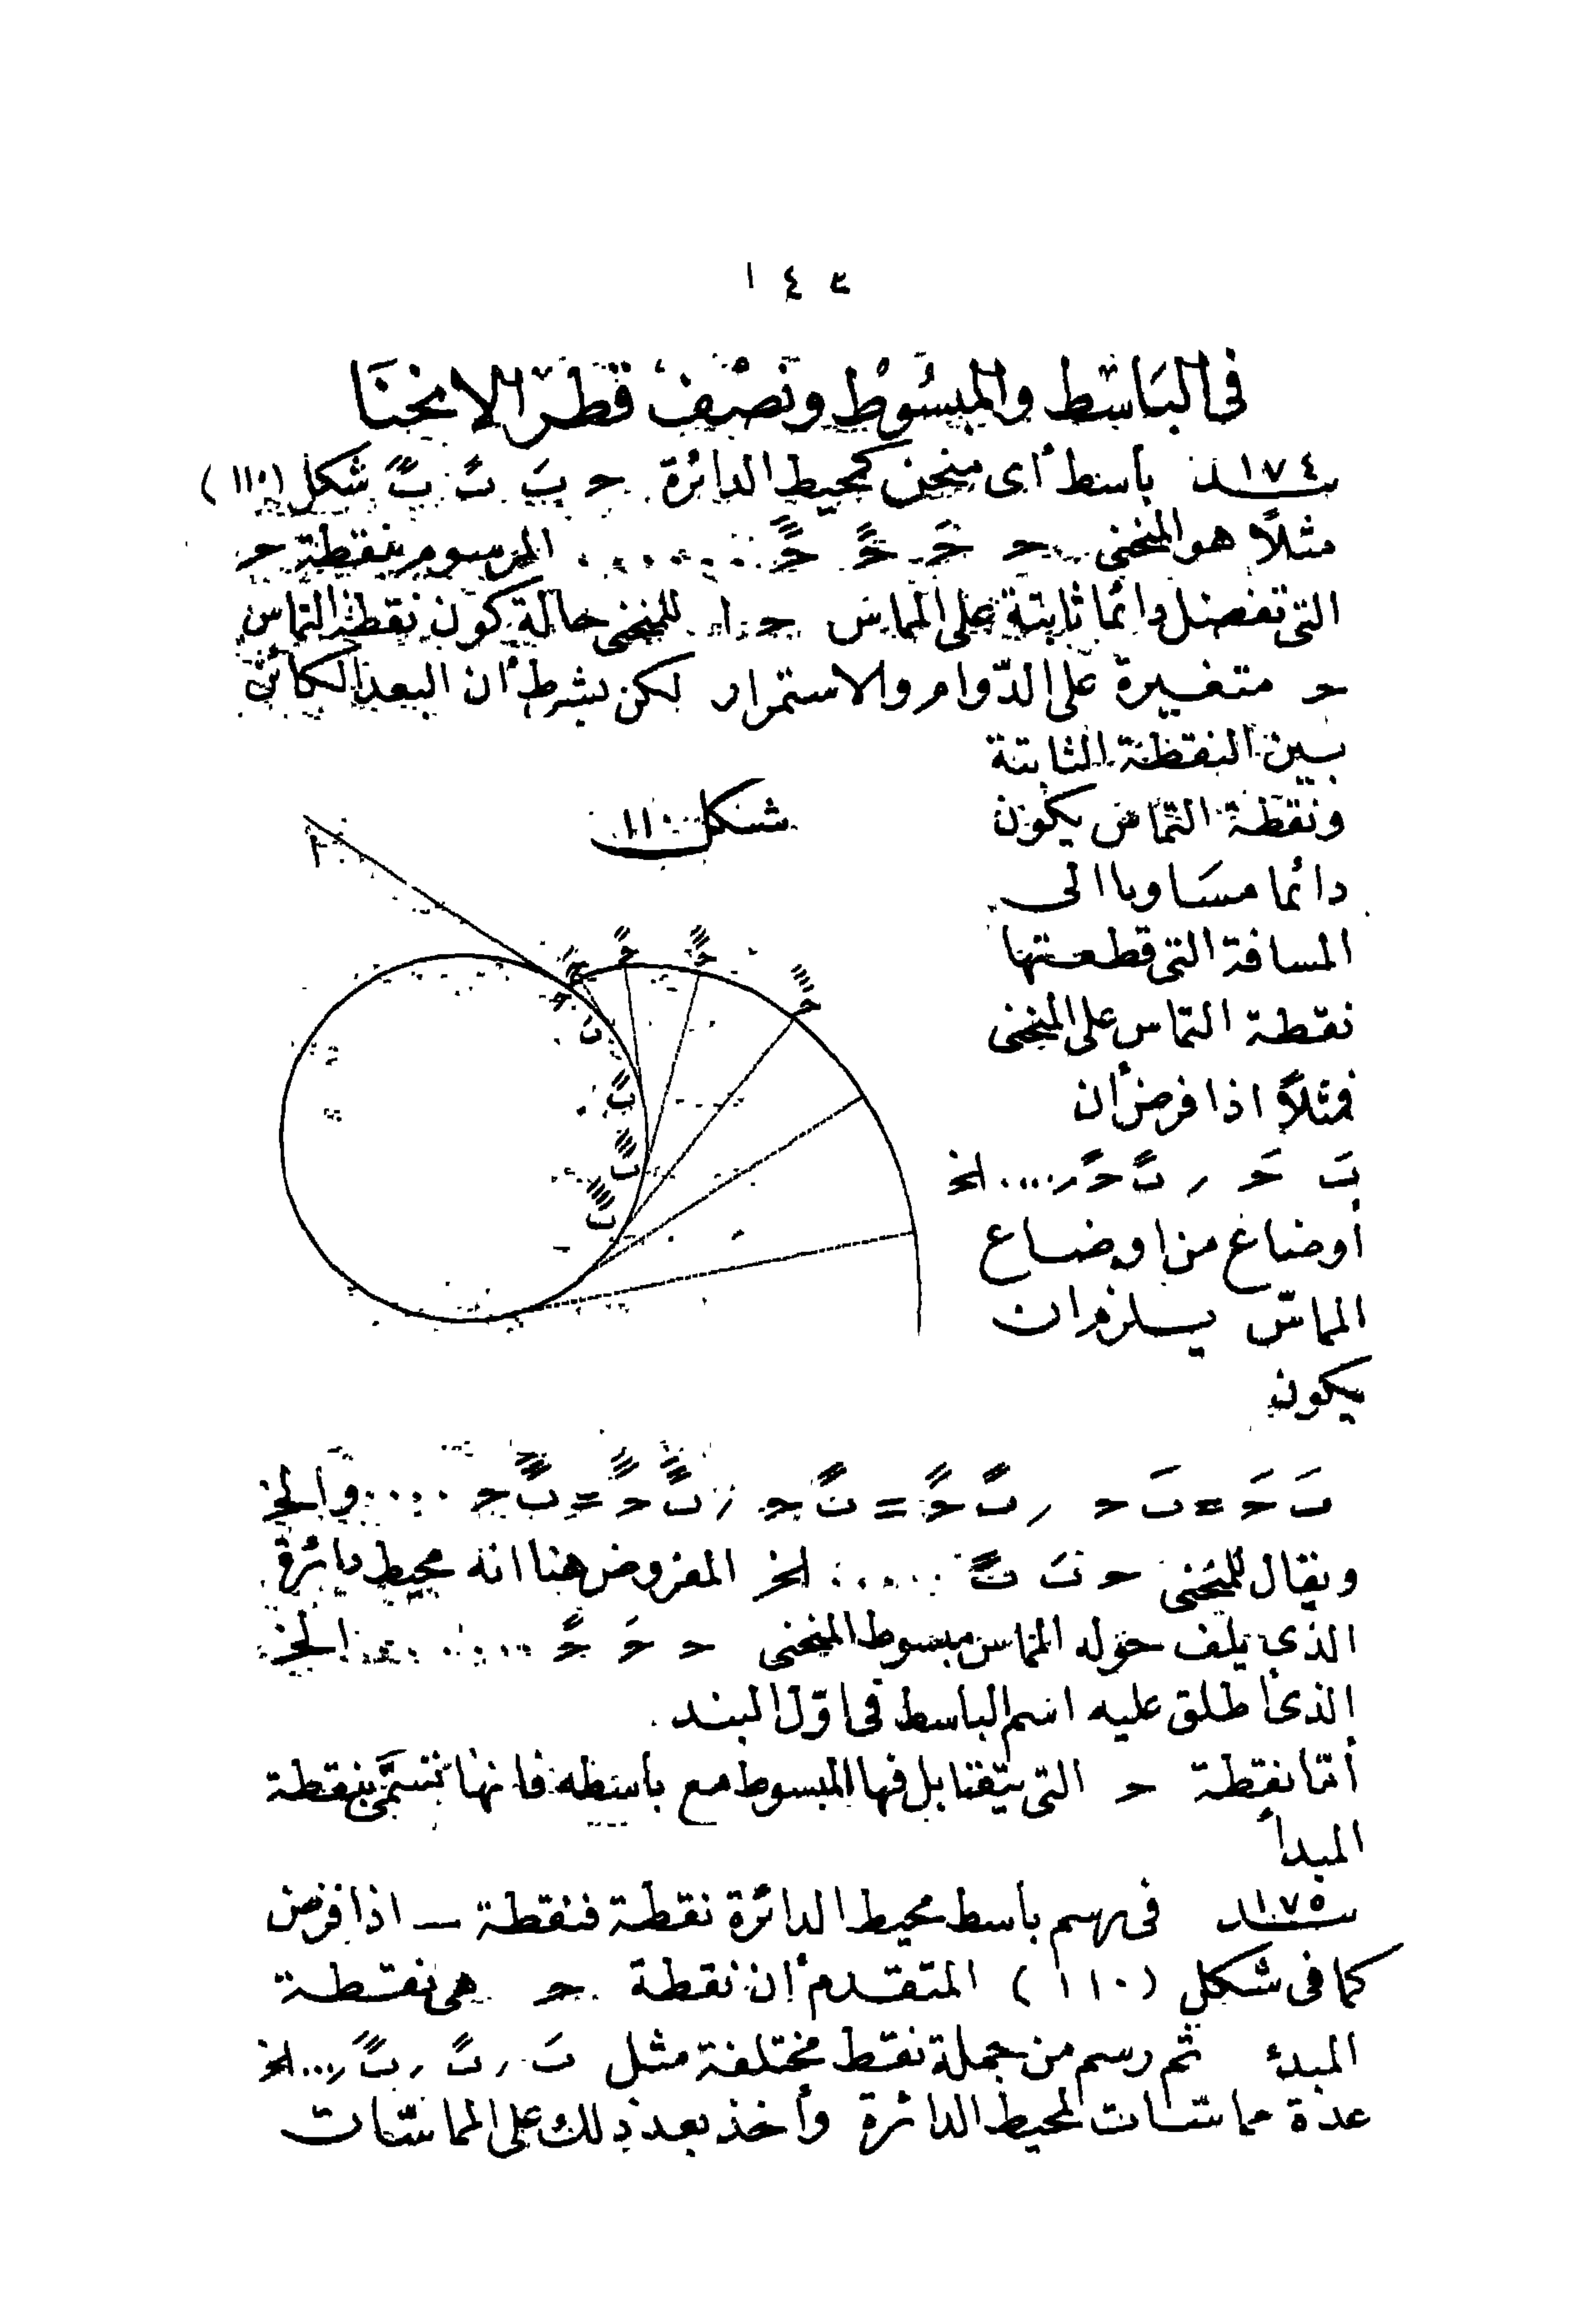 ١٤٢
فى الباسط والمبسوط ونصف قطر الانحنا
بند ١٧٤ باسط أى منحن كمحيط الدائرة حـ بَ بً بًَ شكل (١١٠)
مثلًا هو المنحنى حـ حَـ حً حًَ ...... المرسوم بنقطة حـ
التى تفضل دائما ثابتة على المماس حـ ا للمنحنى حالة كون نقطة التماس
حـ متغيرة على الدّوام والاستمرار لكن بشرط أن البعد الكائن
بين النقطة الثابتة
ونقطة التماس يكون
دائما مسَاويا الى
المسافة التى قطعتها
نقطة التماس على المنحنى
فمثلاً اذا فرض أن
بَ حَـ ر بً حً ر.... الخ
أوضاع من اوضاع
المماسّ يلزم ان
يكون
شكل ١١٠
بَ حَـ = بَ حـ ر بً حً = بً حـ ر بًَ حًَ = بًَ حـ ....والخ
ويقال للمنحنى حـ بَ بً ..... الخ المفروض هنا انه محيط دائرة
الذى يلف حوله المماس مبسوط المنحنى حـ حَـ حً ...... الخ
الذى أطلق عليه اسم الباسط فى اوّل البند .
أمّا نقطة حـ التى يتقابل فيها المبسوط مع باسطه فانها تسمَّى بنقطة
المبدأ
بند ١٧٥ فى رسم باسط محيط الدائرة نقطة فنقطة ــ اذا فرض
كما فى شكل (١١٠) المتقدم أن نقطة حـ هى نقطة
المبدء ثم رسم من جملة نقط مختلفة مثل بَ ر بً ر بًَ ر... الخ
عدة مماسّات لمحيط الدائرة وأخذ بعد ذلك على المماسّات